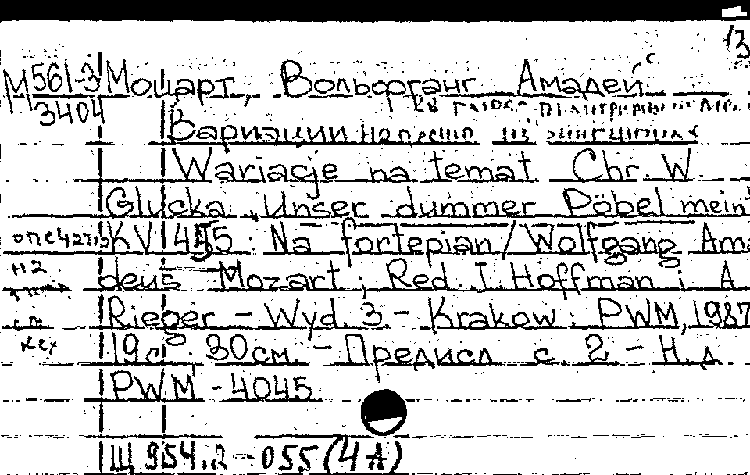 13
М 561-3 Моцарт, Вольфганг Амадей
3404
Вариации
Wariacje na temat Chr. W.
Glucka „Unser dummer Pöbel meint
KV 455: Na fortepian / Wolfgang Ama
deus Mozart; Red. I. Hoffman i A.
Rieger - Wyd. 3 - Krakow: PWM, 1987
19с. 30см. - Предисл с. 2 - Н.д
PWM - 4045
Щ 954.2 - 055 (4А)